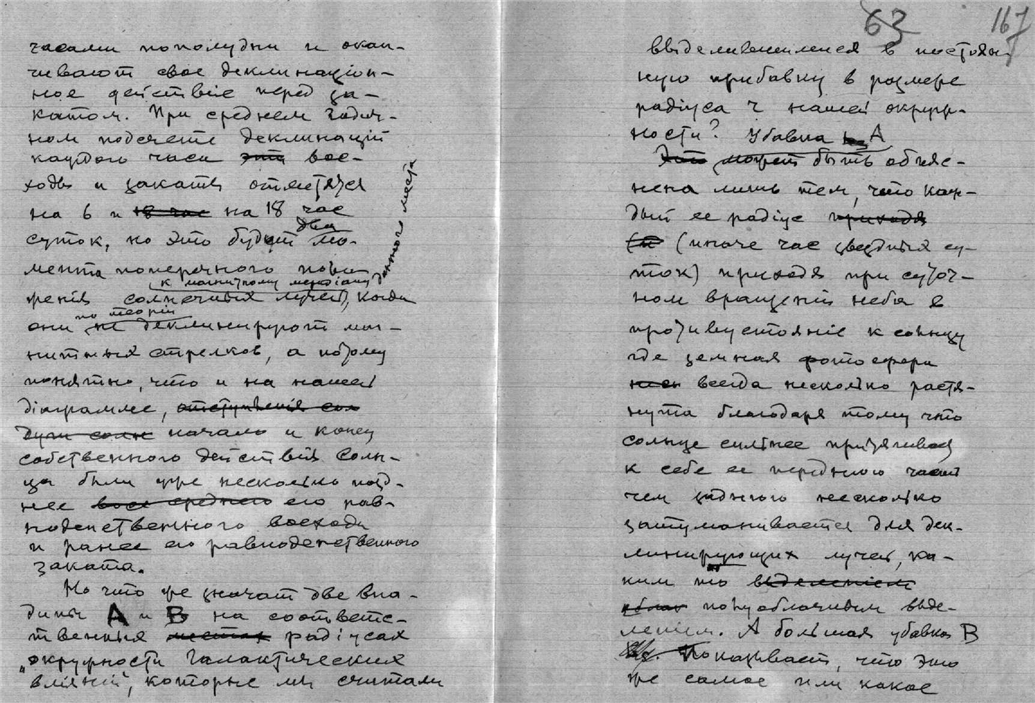 63 167
часами пополудни и окан-
чивают свое деклинаціон-
ное действіе перед за-
катом. При среднем годич-
ном подсчете деклинацій
каждого часа это вос-
ходы и закаты отметятся
на 6 и 18 час на 18 час
суток, но это будет два мо-
мента поперечного
к магнитному меридіану данного места
женія солнечных лучей, когда
они по теоріи не деклинируют маг-
нитных стрелков, а потому
понятно, что и на нашей
діаграмме, отступленія сол
дуги солн начало и конец
собственного действія Солн-
ца были уже несколько позд-
нее его рав-
ноденственного восхода
и ранее его равноденственного
заката.
Но что же значат две впа-
дины А и В на соответс-
твенных местах радіусах
„окружности Галактических
вліяній", которые мы считали
выделившимися в постоян-
ную прибавку в размере
радіуса ч нашей окруж-
ности? Убавка А
Это может быть объяс-
нена лишь тем, что каж-
дый ее радіус приходя
(иначе час звездных су-
ток) приходя при суточ-
ном вращеніи неба в
противустояніе к солнцу
где земная фотосфера
всегда несколько растя-
нута благодаря тому что
солнце сильнее притягивая
к себе ее переднюю часть
чем заднюю несколько
затуманивается для дек-
линирующих лучей, ка-
ким то выделеніем
полуоблачным выде-
леніем. А большая убавка В
показывает, что это
же самое или какое